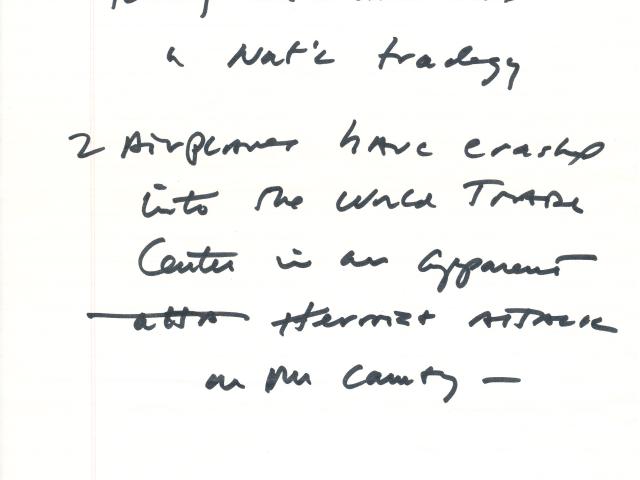 a Nat'l tradegy
2 Airplanes have crashed
into the World Trade
Center in an apparent
atta Terrorist attack
on our country —